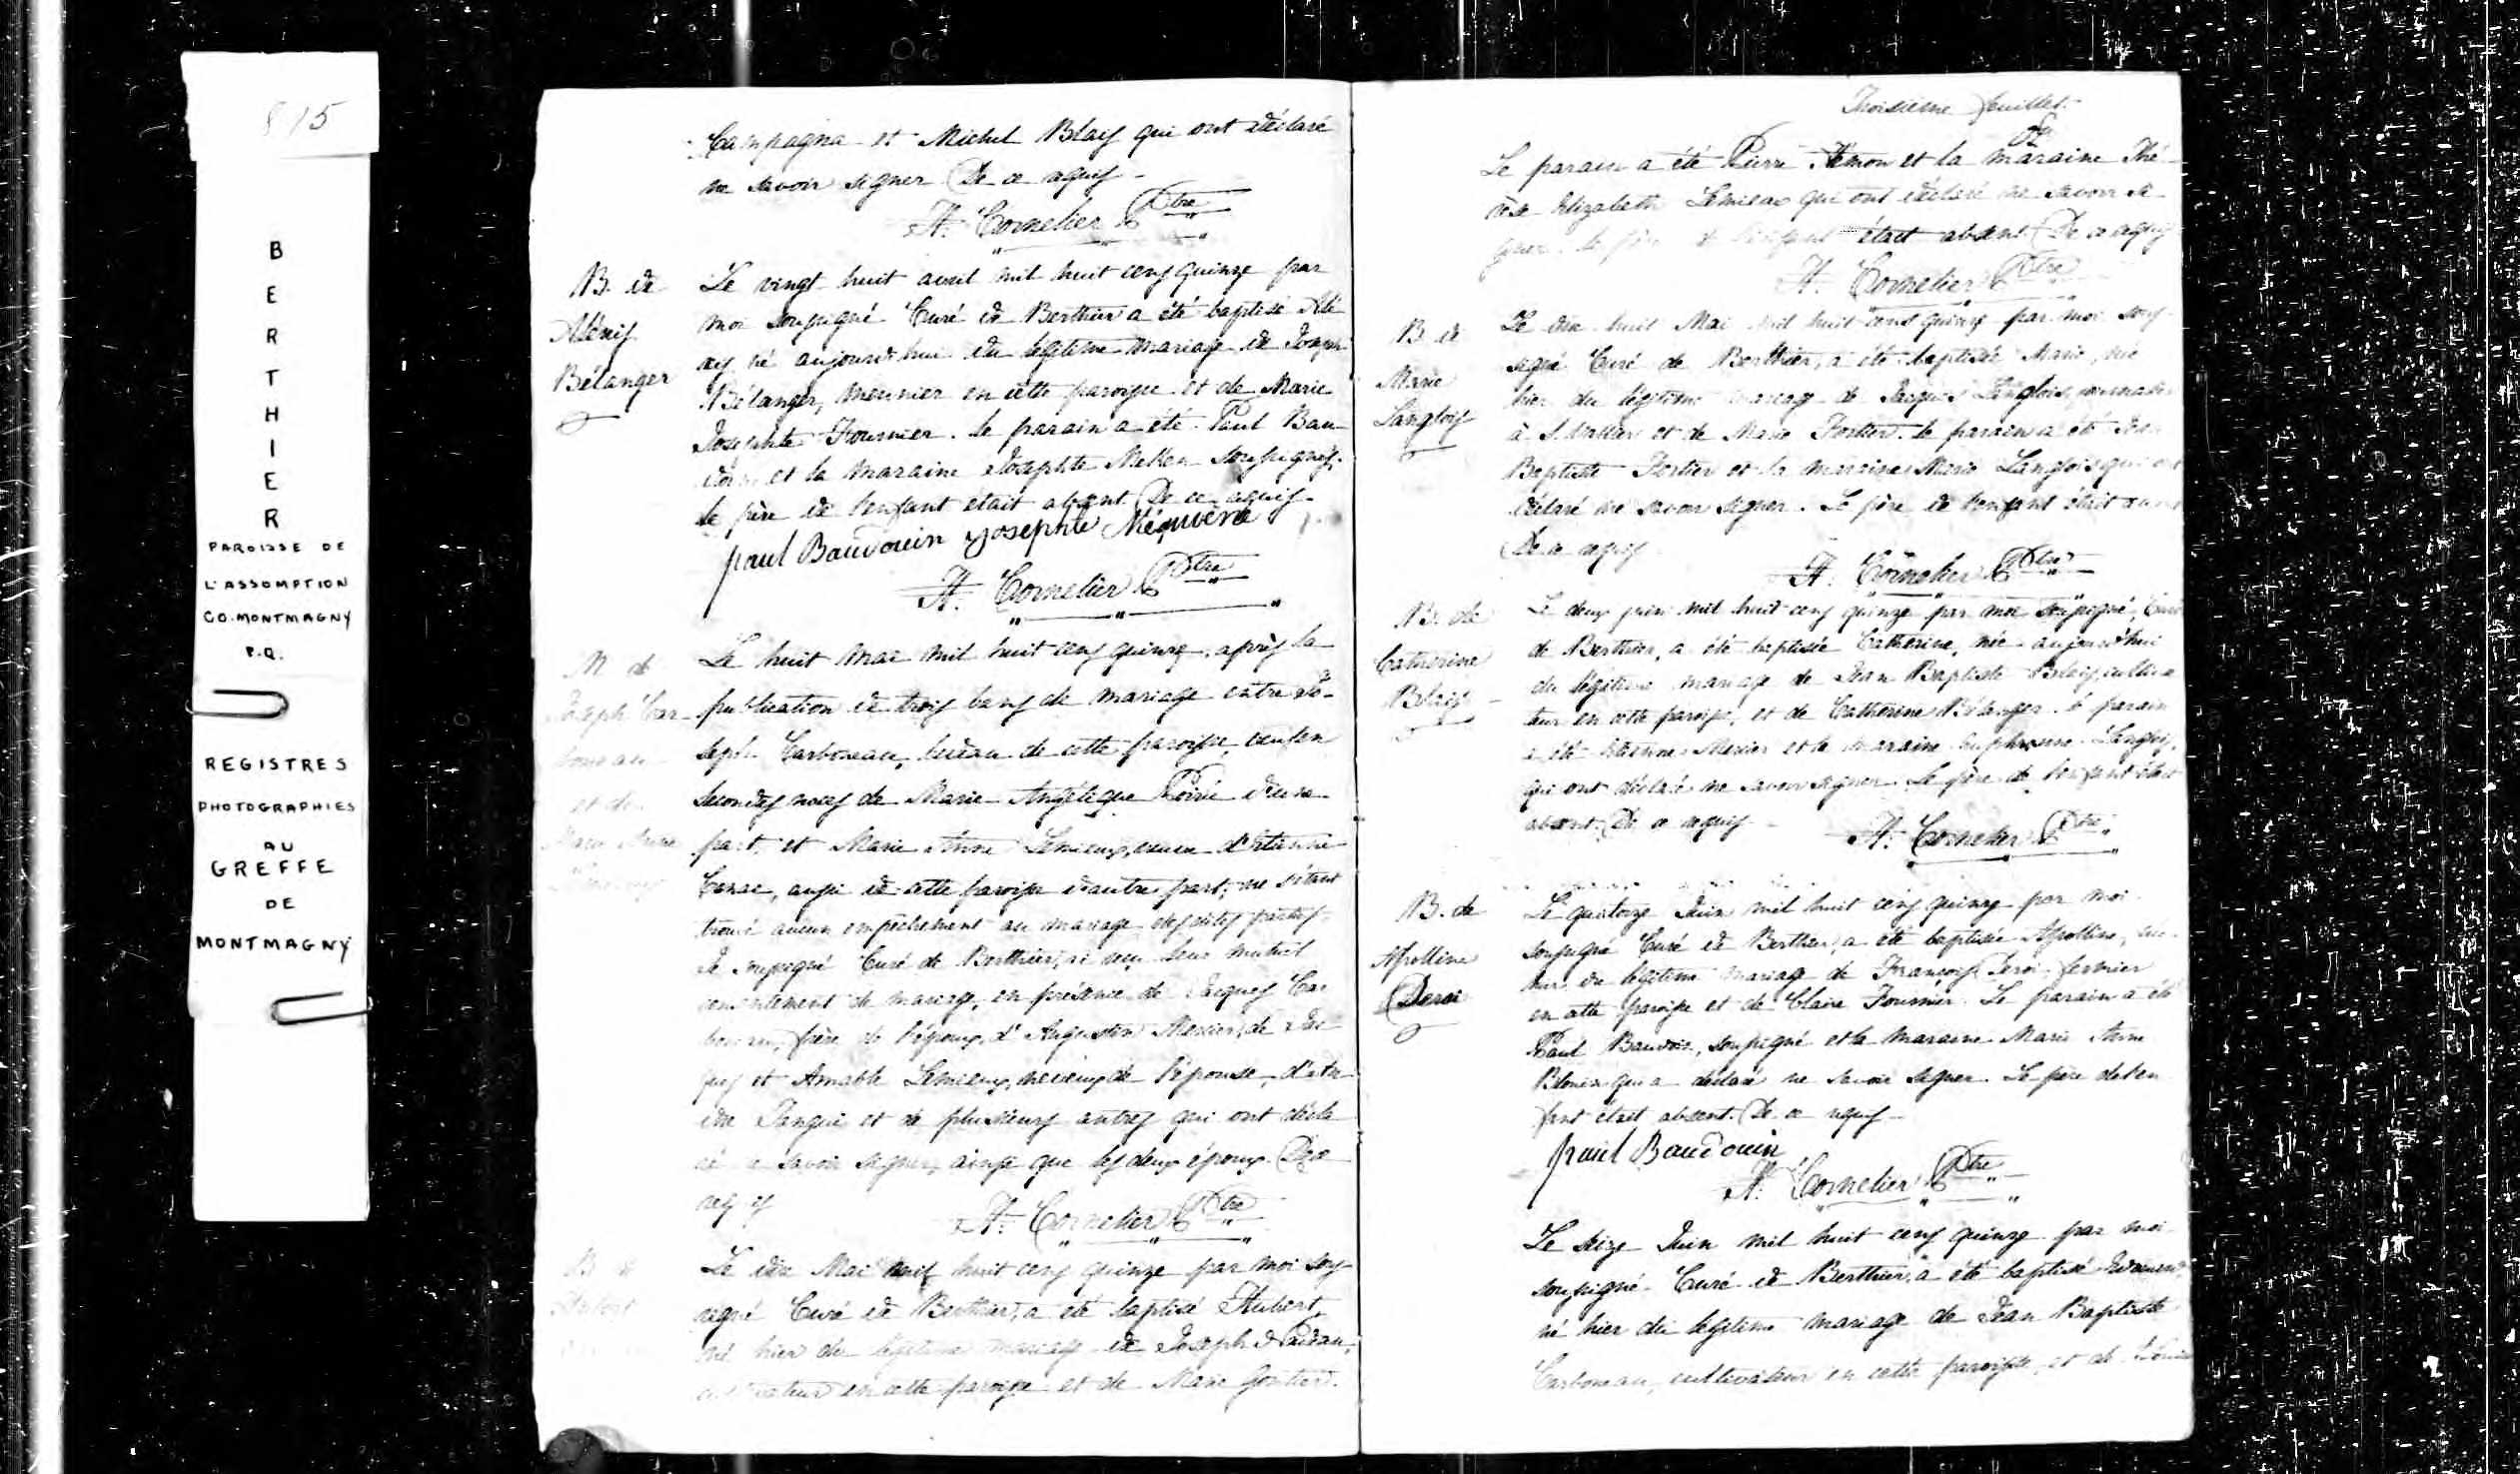 815
BERTHIER
PAROISSE DE
L'ASSOMPTION
CO. MONTMAGNY
P.Q.
REGISTRES
PHOTOGRAPHIES
AU
GREFFE
DE
MONTMAGNY
Campagna et Michel Blais qui ont déclaré
ne savoir signer De ce requis
H. Cornelier Ptre
B. de
Alexis
Bélanger
Le vingt huit avril mil huit cens quinze par
moi soussigné Curé de Berthier a été baptisé Ale
xis né aujourd'hui du légitime mariage de Joseph
Bélanger, meunier en cette paroisse et de Marie
Josephte Fournier. le parain a été Paul Bau
doin et la maraine Josephte soussignés.
le père de l'enfant était absent De ce requis
paul Baudouin Josephte
H. Cornelier Ptre
M de
Joseph Car
boneau
et de
Marie Anne
Le huit Mai mil huit cens quinze, après la
publication de trois bans de mariage entre Jo-
seph Carboneau, bedeau de cette paroisse, veuf en
secondes noces de Marie Angélique Poiré d'une
part, et Marie Anne Lemieux, veuve d'Etienne
aussi de cette paroisse d'autre part; ne s'étant
trouvé aucun empêchement au mariage des dites parties
Je soussigné Curé de Berthier, ai reçu leur mutuel
consentement de mariage, en présence de Jacques Car
boneau, frère de l'époux, d'Augustin Mercier, de Jac
ques et Amable Lemieux, neveux de l'épouse,
Tangué et de plusieurs autres qui ont décla
ré ne savoir signer, ainsi que les deux époux. De ce
requis
H. Cornelier Ptre
B de
Hubert
Le dix Mai mil huit cens quinze par moi sous
signé Curé de Berthier, a été baptisé Hubert,
né hier du légitime mariage de Joseph Nadeau,
cultivateur en cette paroisse et de Marie
Troisième feuillet.
Le parain a été Pierre et la maraine Thé
rèse Elizabeth Lemieux qui ont déclaré ne savoir si
gner. le père de l'enfant était absent De ce requis
H. Cornelier Ptre
B. de
Marie
Langlois
Le dix huit Mai mil huit cens quinze par moi sous
signé Curé de Berthier, a été baptisée Marie, née
hier du légitime mariage de Jacques Langlois, journalier
à S. Vallier et de Marie Fortier. le parain a été Jean
Baptiste Fortier et la maraine Marie Langlois qui ont
déclaré ne savoir signer. Le père de l'enfant était
De ce requis
H. Cornelier Ptre
B. de
Catherine
Blais
Le deux juin mil huit cens quinze par moi soussigné, Curé
de Berthier, a été baptisée Catherine, née aujourd'hui
du légitime mariage de Jean Baptiste Blais, cultiva
teur en cette paroisse, et de Catherine Bélanger. le parain
a été Etienne Mercier et la maraine Langlois,
qui ont déclaré ne savoir signer. Le père de l'enfant était
absent. De ce requis
H. Cornelier Ptre
B. de
Apolline
Deroi
Le quatorze Juin mil huit cens quinze par moi
soussigné Curé de Berthier, a été baptisée Apolline, née
hier du légitime mariage de François Deroi, fermier
en cette paroisse et de Claire Fournier. Le parain a été
Paul Baudoin, soussigné et la maraine Marie Anne
Blouin qui a déclaré ne savoir signer. Le père de l'en
fant était absent. De ce requis
paul Baudouin
H. Cornelier Ptre
Le seize Juin mil huit cens quinze par moi
soussigné Curé de Berthier, a été baptisé
né hier du légitime mariage de Jean Baptiste
Carboneau, cultivateur en cette paroisse, et de